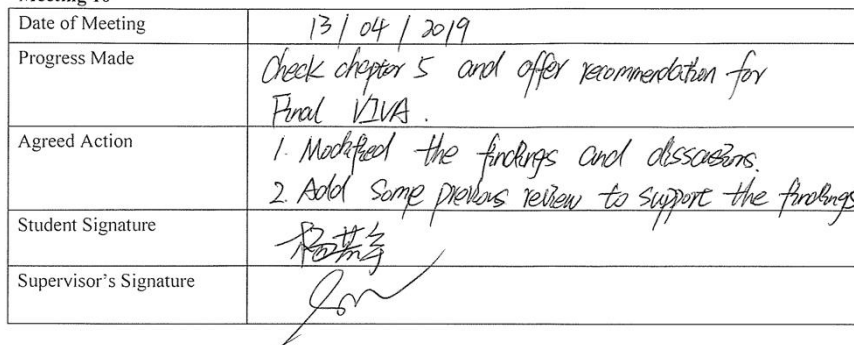 Meeting 10
Date of Meeting 13 / 04 / 2019
Progress Made Check chapter 5 and offer recommendation for
Final VIVA.
Agreed Action 1. Modified the findings and disscussions.
2. Add some previous review to support the findings
Student Signature
Supervisor's Signature